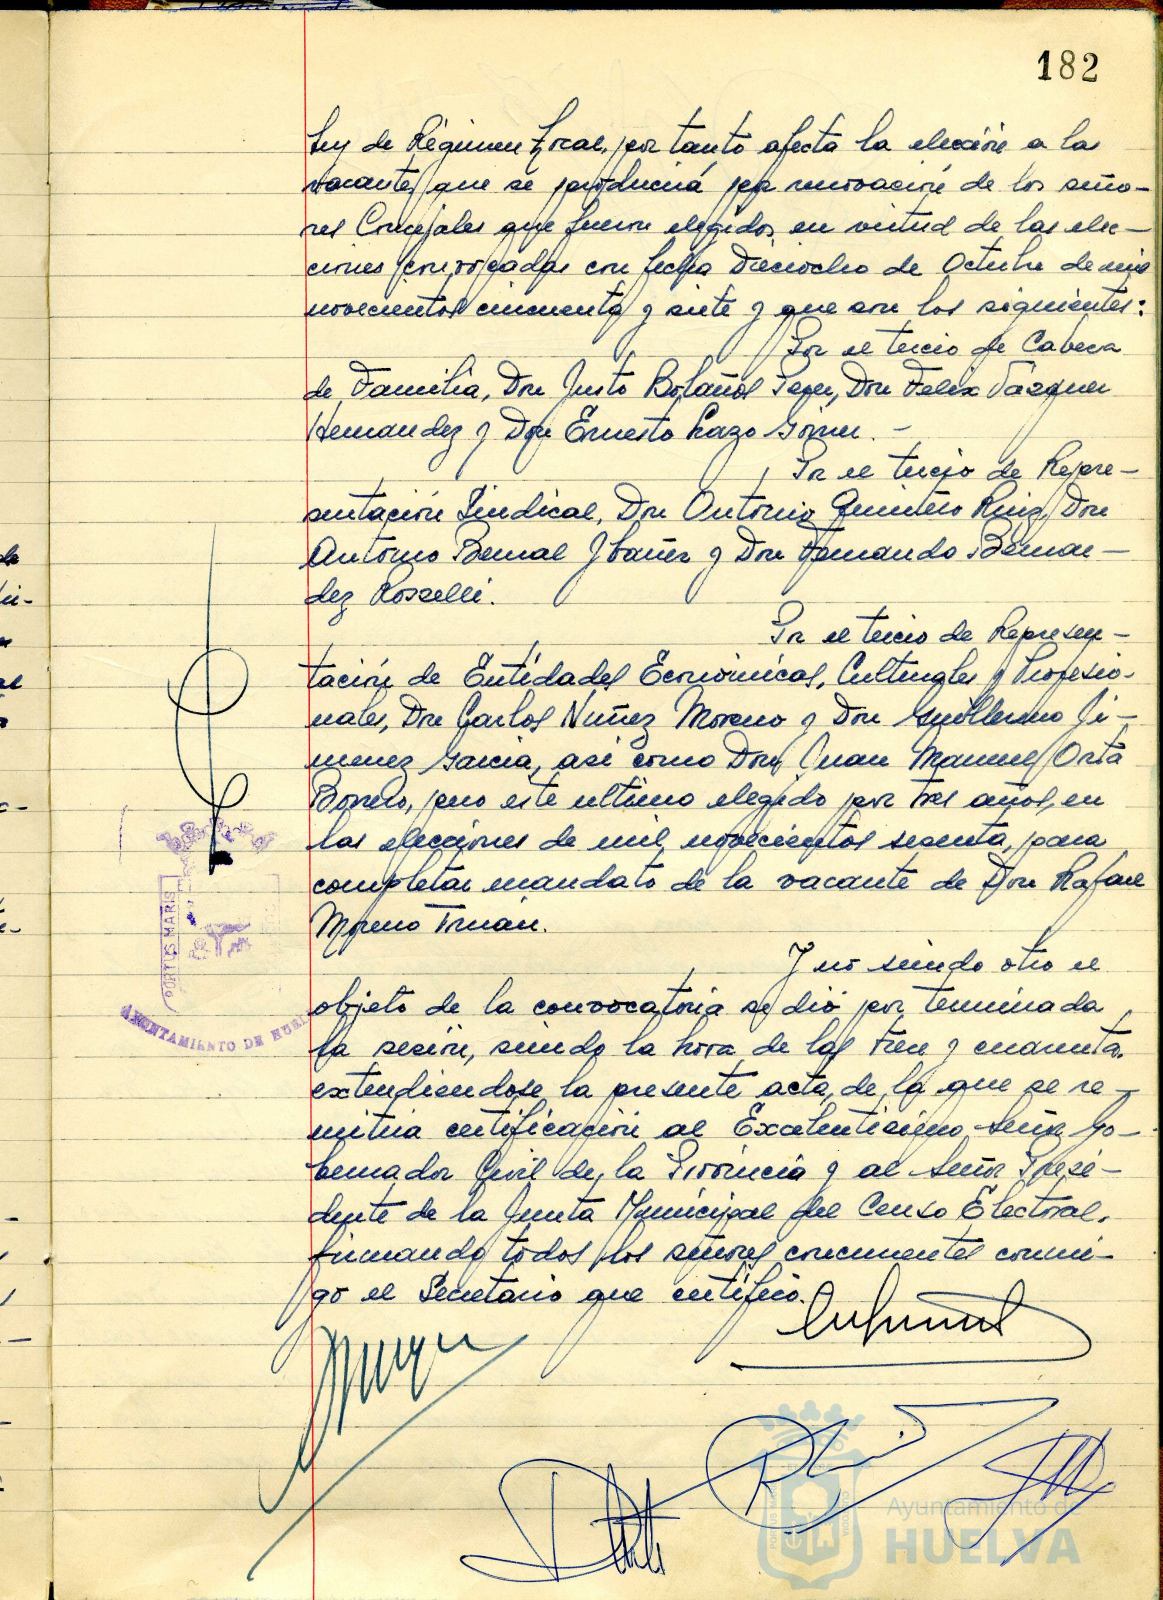 182
Ley de Régimen Local, por tanto afecta la elección a las
vacantes que se producirá por renovación de los seño-
res Concejales que fueron elegidos en virtud de las elec-
ciones convocadas con fecha Dieciocho de Octubre de mil
novecientos cincuenta y siete y que son los siguientes:
Por el tercio de Cabeza
de Familia, Don Justo Bolaños Perez, Don Felix Vazquez
Hernandez y Don Ernesto Lazo Gómez. -
Por el tercio de Repre-
sentación Sindical, Don Antonio Quintero Ruiz, Don
Antonio Bernal Ibañez y Don Fernando Bernan-
dez Rosselli.
Por el tercio de Represen-
tación de Entidades Económicas, Culturales y Profesio-
nales, Don Carlos Núñez Moreno y Don Guillermo Ji-
menez Garcia, así como Don Juan Manuel Orta
Borrero, pero este ultimo elegido por tres años, en
las elecciones de mil novecientos sesenta, para
completar mandato de la vacante de Don Rafael
Moreno
Y no siendo otro el
objeto de la convocatoria se dió por terminada
la sesión, siendo la hora de las trece y cuarenta,
extendiendose la presente acta, de la que se re-
mitirá certificación al Excelentísimo Señor Go-
bernador Civil de la Provincia y al Señor Presi-
dente de la Junta Municipal del Censo Electoral,
firmando todos los señores concurrentes conmi-
go el Secretario que certifico.
PORTUS MARIS
AYUNTAMIENTO DE HUEL
Ayuntamiento de
HUELVA